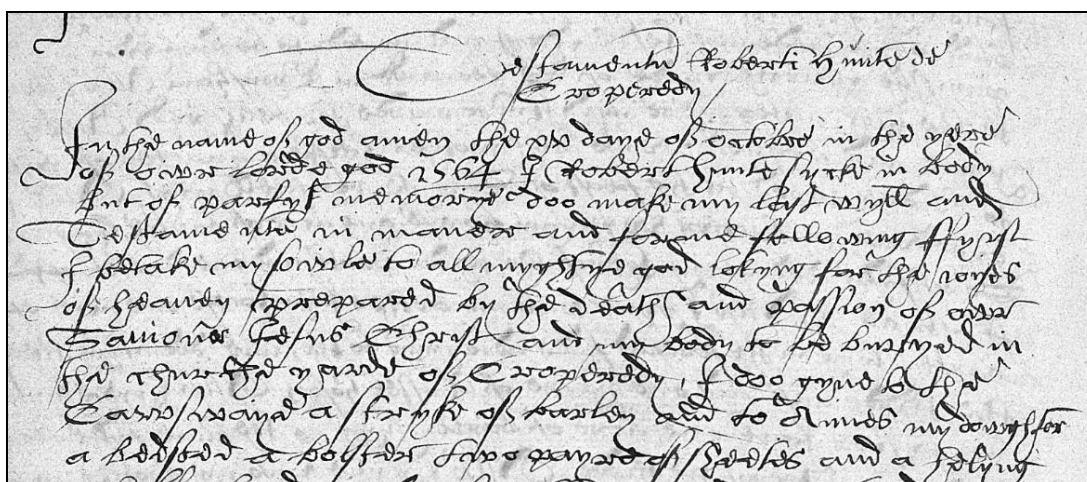 Testamentu Roberti Hunte de
Croperedy
In the name of god amen the xv daye of octobre in the yere
of owr lorde god 1564 I Robert Hunte sycke in body
but of parfyt memorye doo make my last wyll and
Testamente in maner and forme following ffyrst
I betake my sowle to all myghtye god lokyng for the ioyes
of heaven prepared by the death and passion of owr
Saviour Jesus Christ and my body to be buryed in
the churche yarde of Croperedy, I doo gyve to the
a stryke of barley and to Annes my dowghter
a bedsted a bolster two payre of sheetes and a helyng